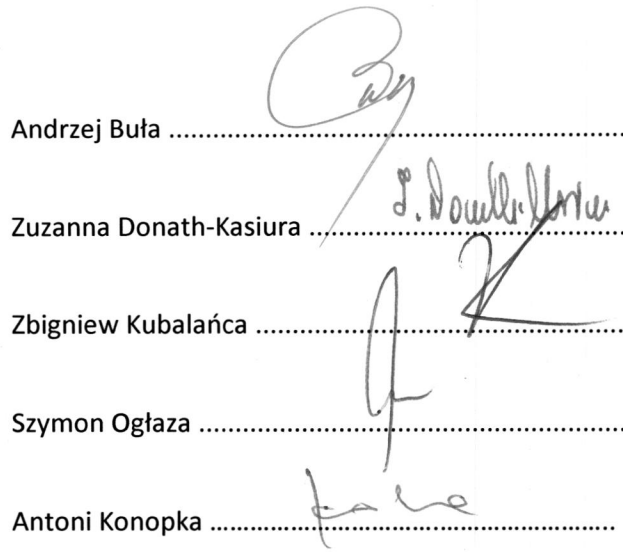 Andrzej Buła ..................................................................
Zuzanna Donath-Kasiura .............................................
Zbigniew Kubalańca .....................................................
Szymon Ogłaza ..............................................................
Antoni Konopka ...........................................................